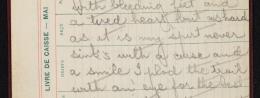 LIVRE DE CAISSE — MAI
with bleeding feet and
a tired heart but as hard
as it is my spurt never
sink's with a curse and
a smile I plod the trail
with an eye for the best